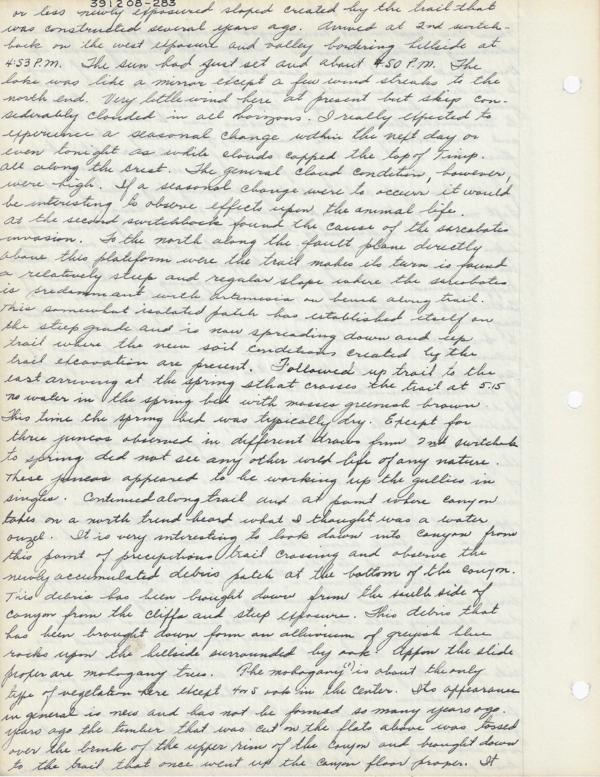 391208-283
or less newly exposured sloped created by the trail that
was constructed several years ago. Arrived at 2nd switch-
back on the west exposure and valley bordering hillside at
4:53 P.M. The sun had just set and about 4:50 P.M. The
lake was like a mirror except a few wind streaks to the
north end. Very little wind here at present but skys con-
siderably clouded in all horizons. I really expected to
experience a seasonal change within the next day or
even tonight as while clouds capped the top of Timp.
all along the crest. The general cloud condition, however,
were high. If a seasonal change were to occurr it would
be interesting to observe effects upon the animal life.
At the second switchback found the cause of the sarcobates
invasion. To the north along the fault plane directly
above this platiform were the trail makes its turn is found
a relatively steep and regular slope where the sarcobates
is predominant with artemisia on bench along trail.
This somewhat isolated patch has established itself on
the steep grade and is now spreading down and up
trail where the new soil conditions created by the
trail excavation are present. Followed up trail to the
east arriving at the spring sthat crosses the trail at 5:15
no water in the spring bed with mosses greenish brown.
This time the spring bed was typically dry. Except for
three juncos observed in different draws from 2nd switchback
to spring did not see any other wild life of any nature.
These juncos appeared to be working up the gullies in
singles. Continued along trail and at point where canyon
takes on a north trend heard what I thought was a water
ouzel. It is very interesting to look down into canyon from
this point of precipitious trail crossing and observe the
newly accumulated debris patch at the bottom of the canyon.
This debris has been brought down from the south side of
canyon from the cliffs and steep exposure. This debris that
has been brought down form an alluvium of greyish blue
rocks upon the hillside surrounded by oak. Upon the slide
proper are mohogany trees. The mohogany (?) is about the only
type of vegetation here except 4 or 5 oak in the center. Its appearance
in general is new and has not be formed so many years ago.
years ago the timber that was cut on the flats above was tossed
over the brink of the upper rim of the canyon and brought down
to the trail that once went up the canyon floor proper. It